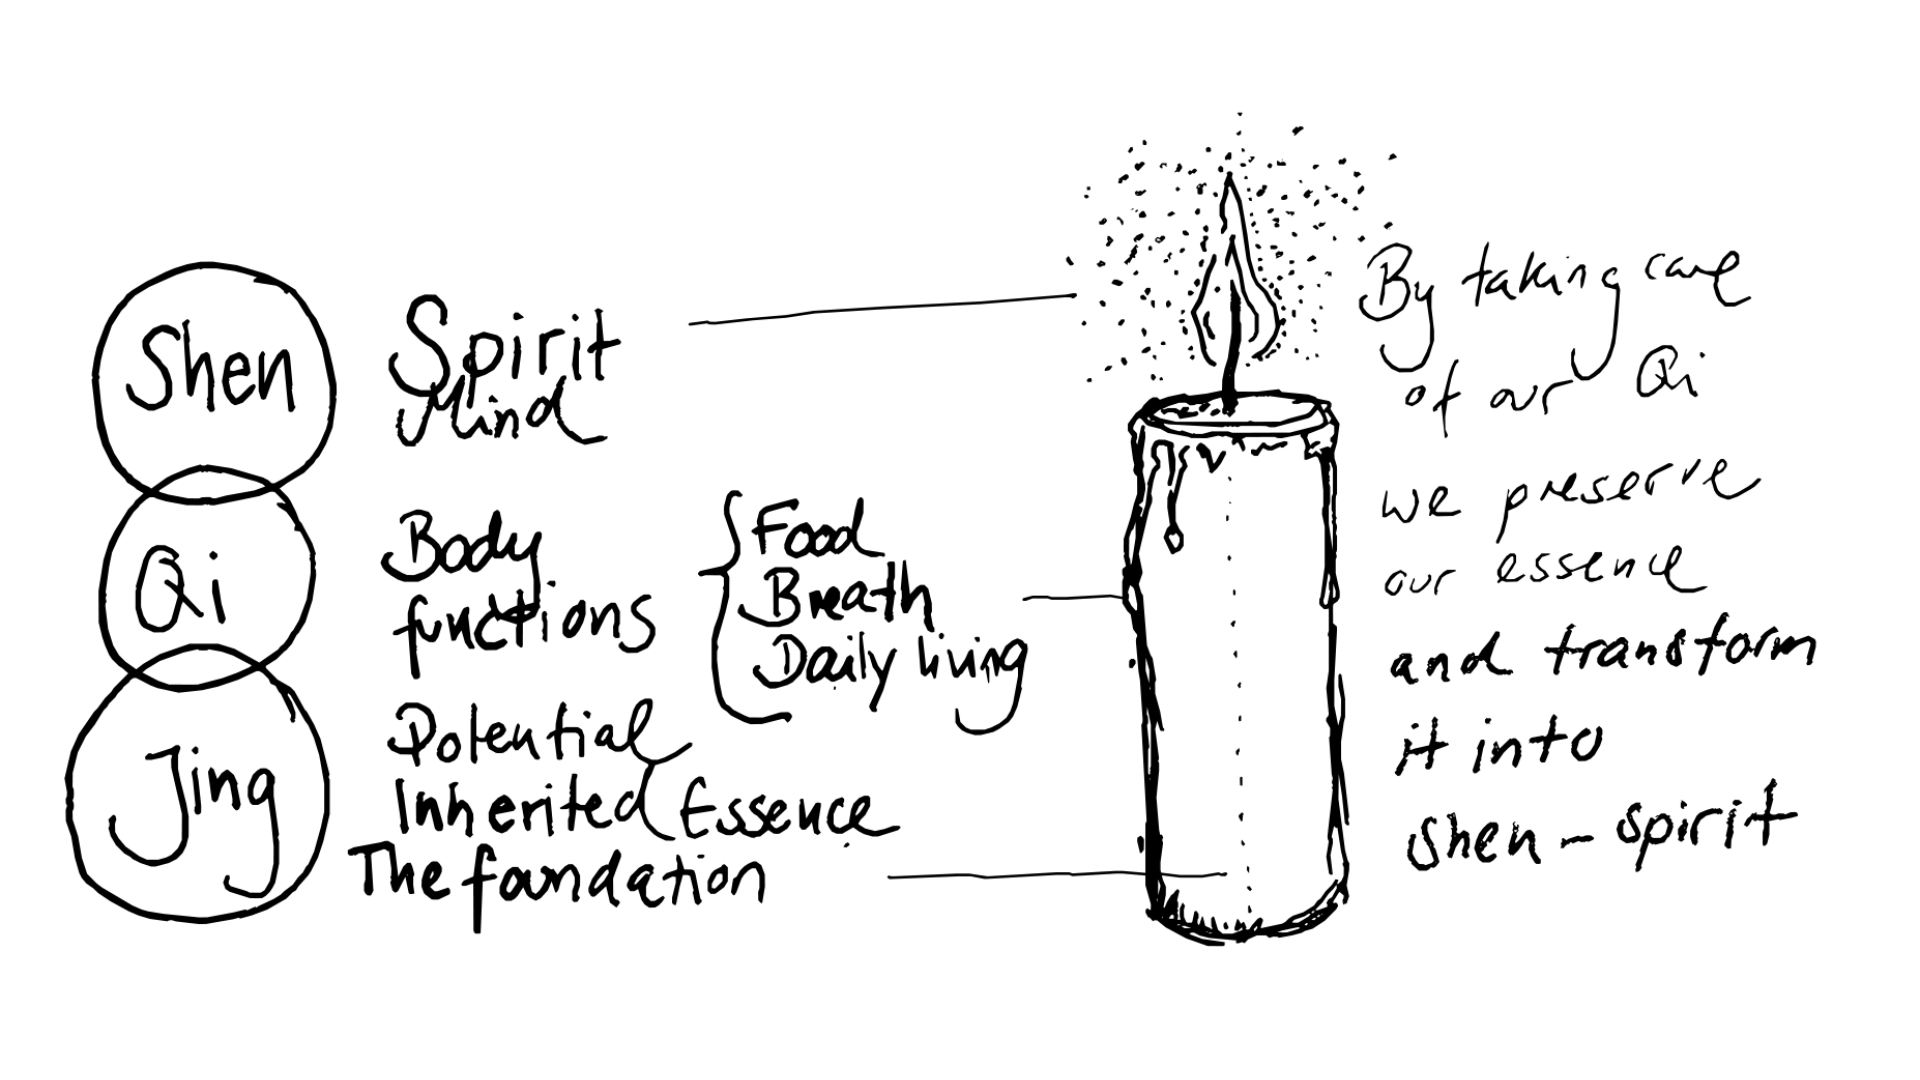 Shen
Spirit
Mind
Qi
Body
functions
Food
Breath
Daily living
Jing
Potential
Inherited Essence
The foundation
By taking care
of our Qi
we preserve
our essence
and transform
it into
shen - spirit